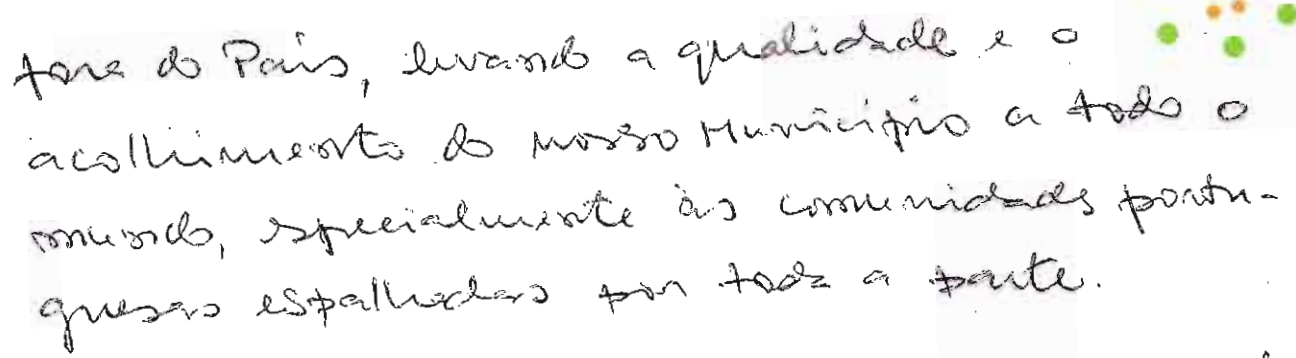 fora do País, levando a qualidade e o
acolhimento do nosso Município a todo o
mundo, especialmente às comunidades portu-
guesas espalhadas por toda a parte.